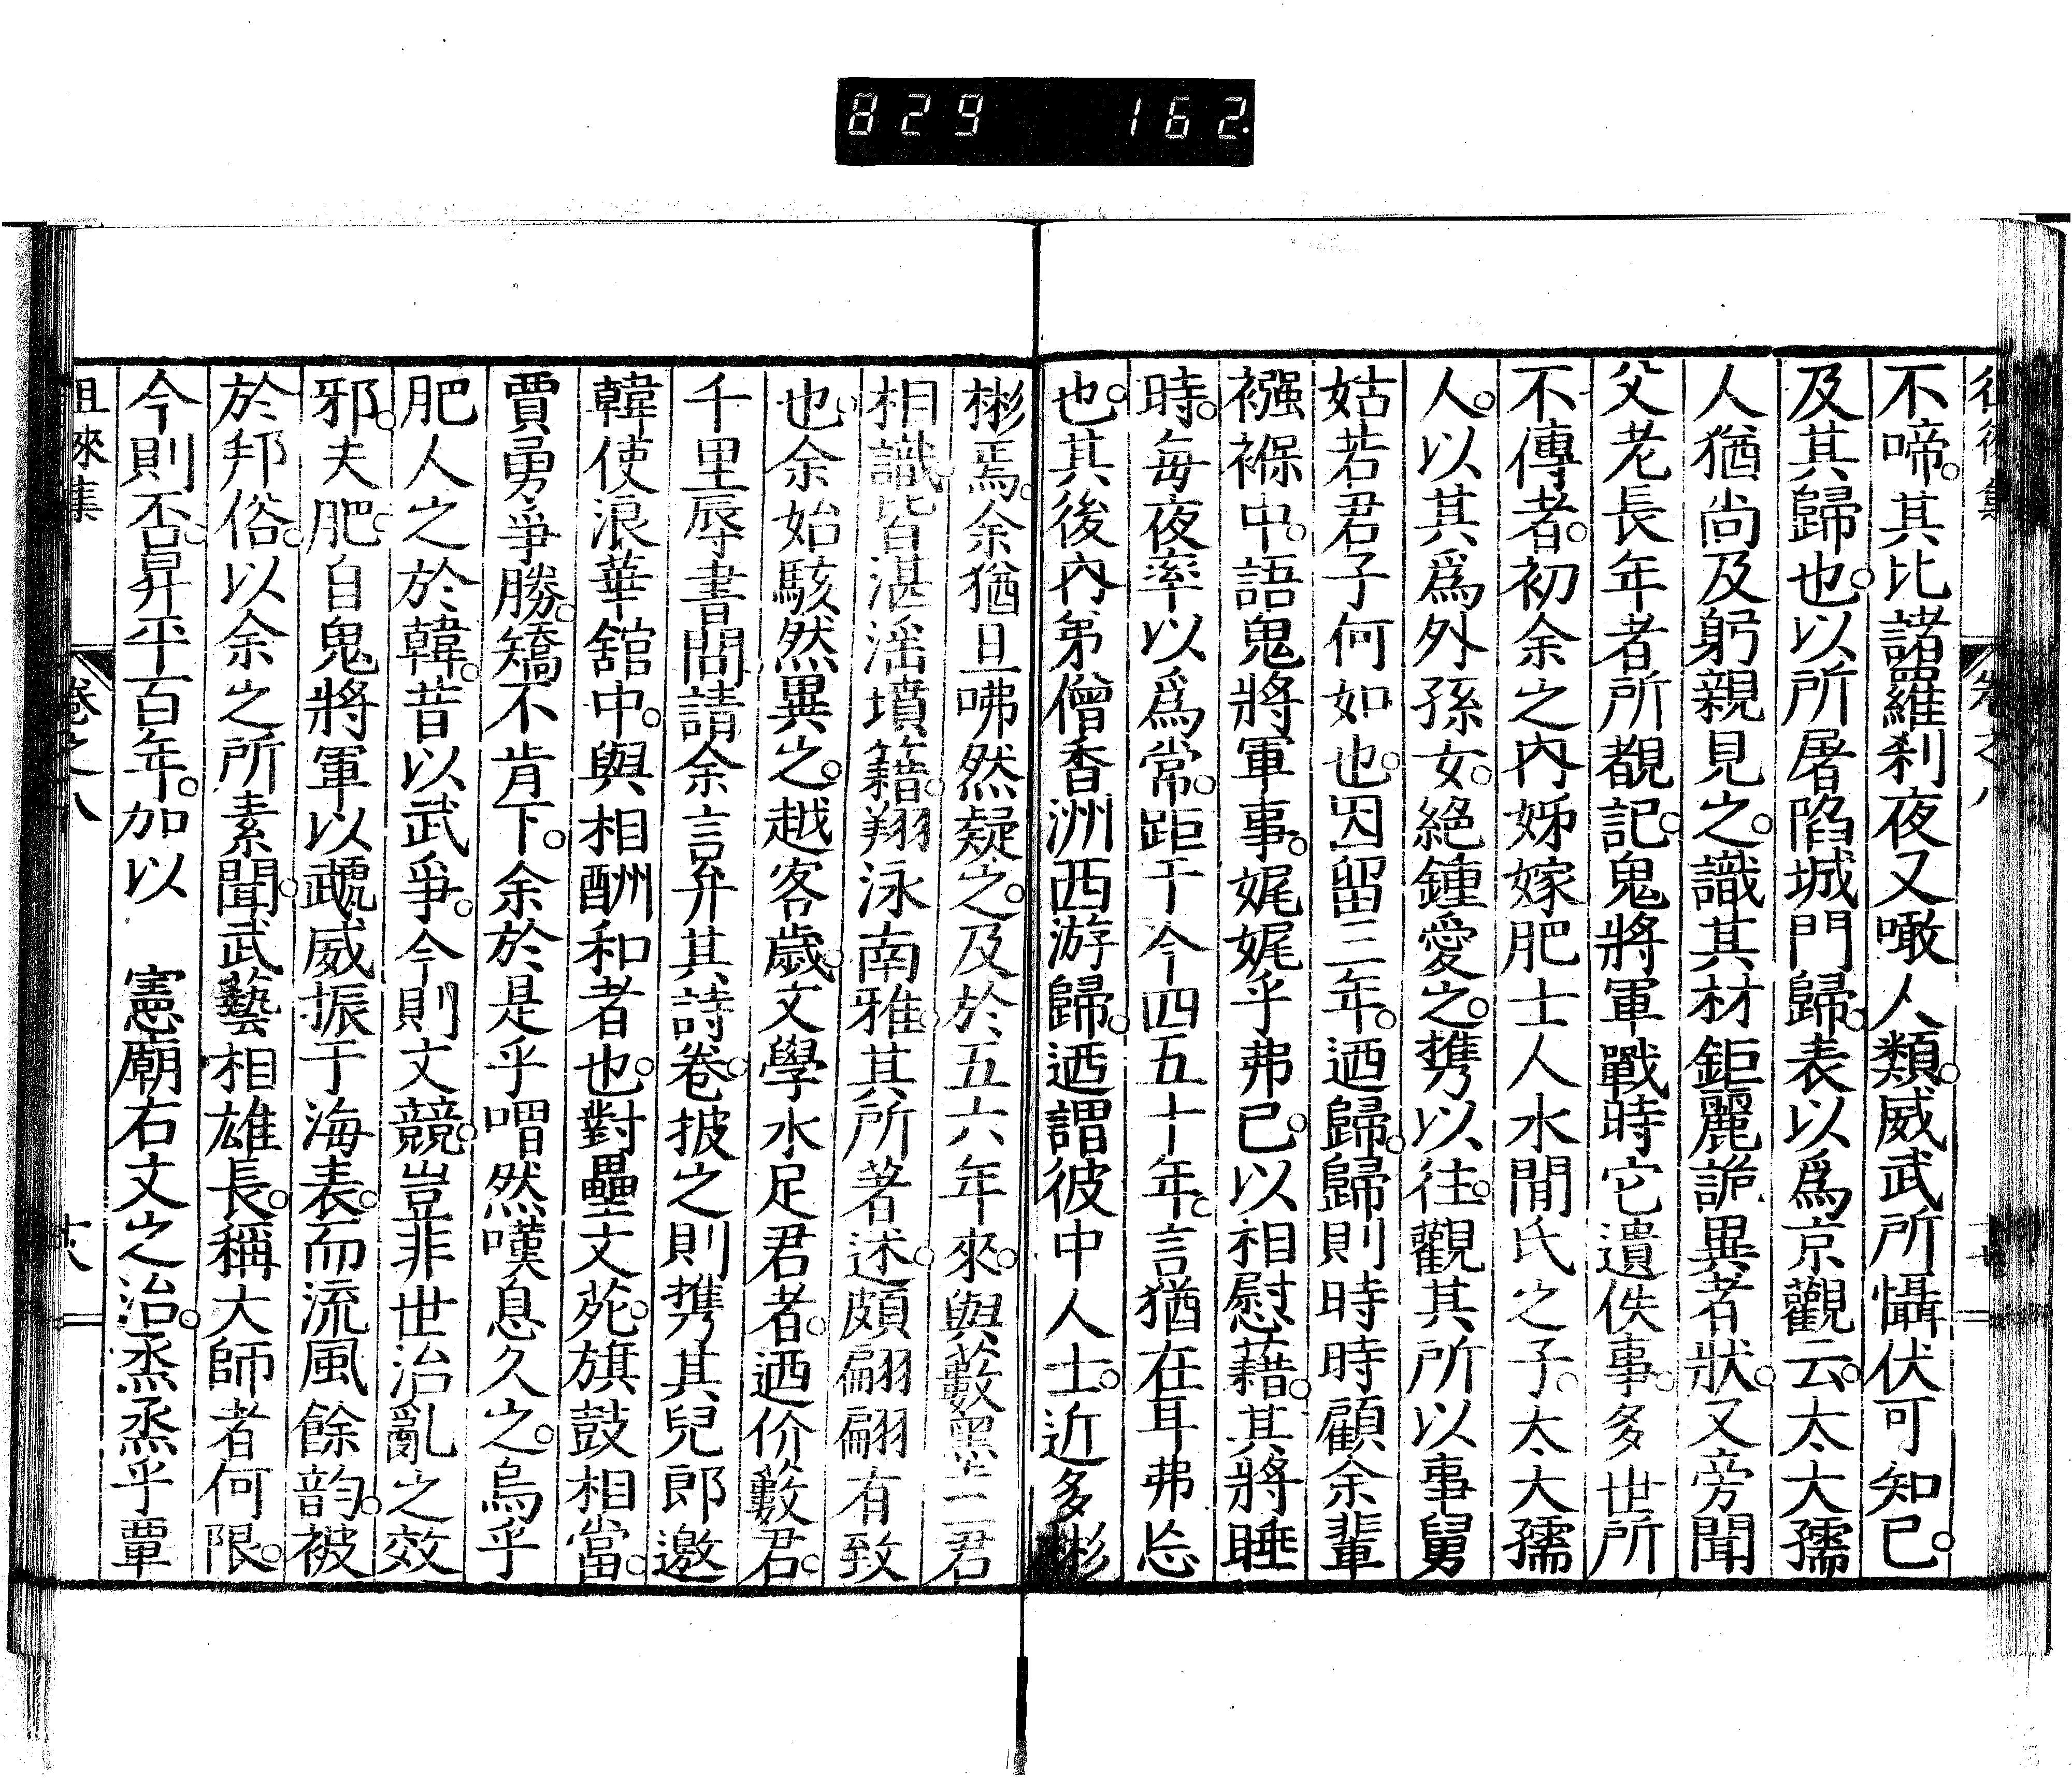 829 162
不啼。其比諸羅刹夜叉噉人類。威武所懾伏可知已。
及其歸也。以所屠陷城門歸。表以爲京觀云。太大孺
人猶尚及躬親見之。識其材鉅麗詭異者狀。又旁聞
父老長年者所覩記。鬼將軍戰時它遺佚事。多世所
不傳者。初余之内姊嫁肥士人水間氏之子。太大孺
人。以其爲外孫女。絕鍾愛之。携以往。觀其所以事舅
姑若君子何如也。因留三年。迺歸。歸則時時顧余輩
襁褓中。語鬼將軍事。娓娓乎弗已。以相慰藉。其將睡
時。每夜率以爲常。距于今四五十年。言猶在耳弗忘
也。其後內弟僧香洲西游歸。迺謂彼中人士。近多彬
彬焉。余猶且咈然疑之。及於五六年來。與藪黑二君
相識。皆湛滛墳籍。翔泳南雅。其所著述。頗翩翩有致
也。余始駭然異之。越客歲。文學水足君者。迺价藪君。
千里辱書問。請余言弁其詩卷。披之則携其兒郎邀
韓使浪華舘中。與相酬和者也。對壘文苑。旗鼓相當。
賈勇爭勝。矯不肯下。余於是乎喟然嘆息久之。烏乎
肥人之於韓。昔以武爭。今則文競。豈非世治亂之效
邪。夫肥。自鬼將軍以虣威振于海表。而流風餘韵。被
於邦俗。以余之所素聞。武藝相雄長。稱大師者何限。
今則否。昇平百年。加以 憲廟右文之治。烝烝乎覃
徂徠集 卷之八 十八